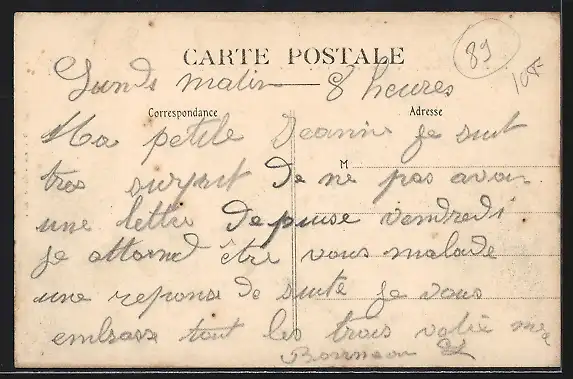 89
10F
CARTE POSTALE
Lunds matin 8 heures
Correspondance
Adresse
Ma petite Jeanne je suit
M
tres surprit de ne pas avoir
une lettre depuise vendredi
je attend être vous malade
une reponse de suite je vous
embrasse tout les trois votre mer